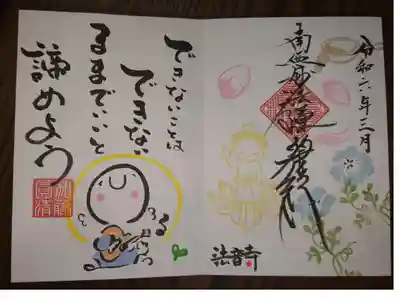 令和六年三月
南無妙法蓮華経
法音寺
できないことは
できない
ままでいいと
諦めよう